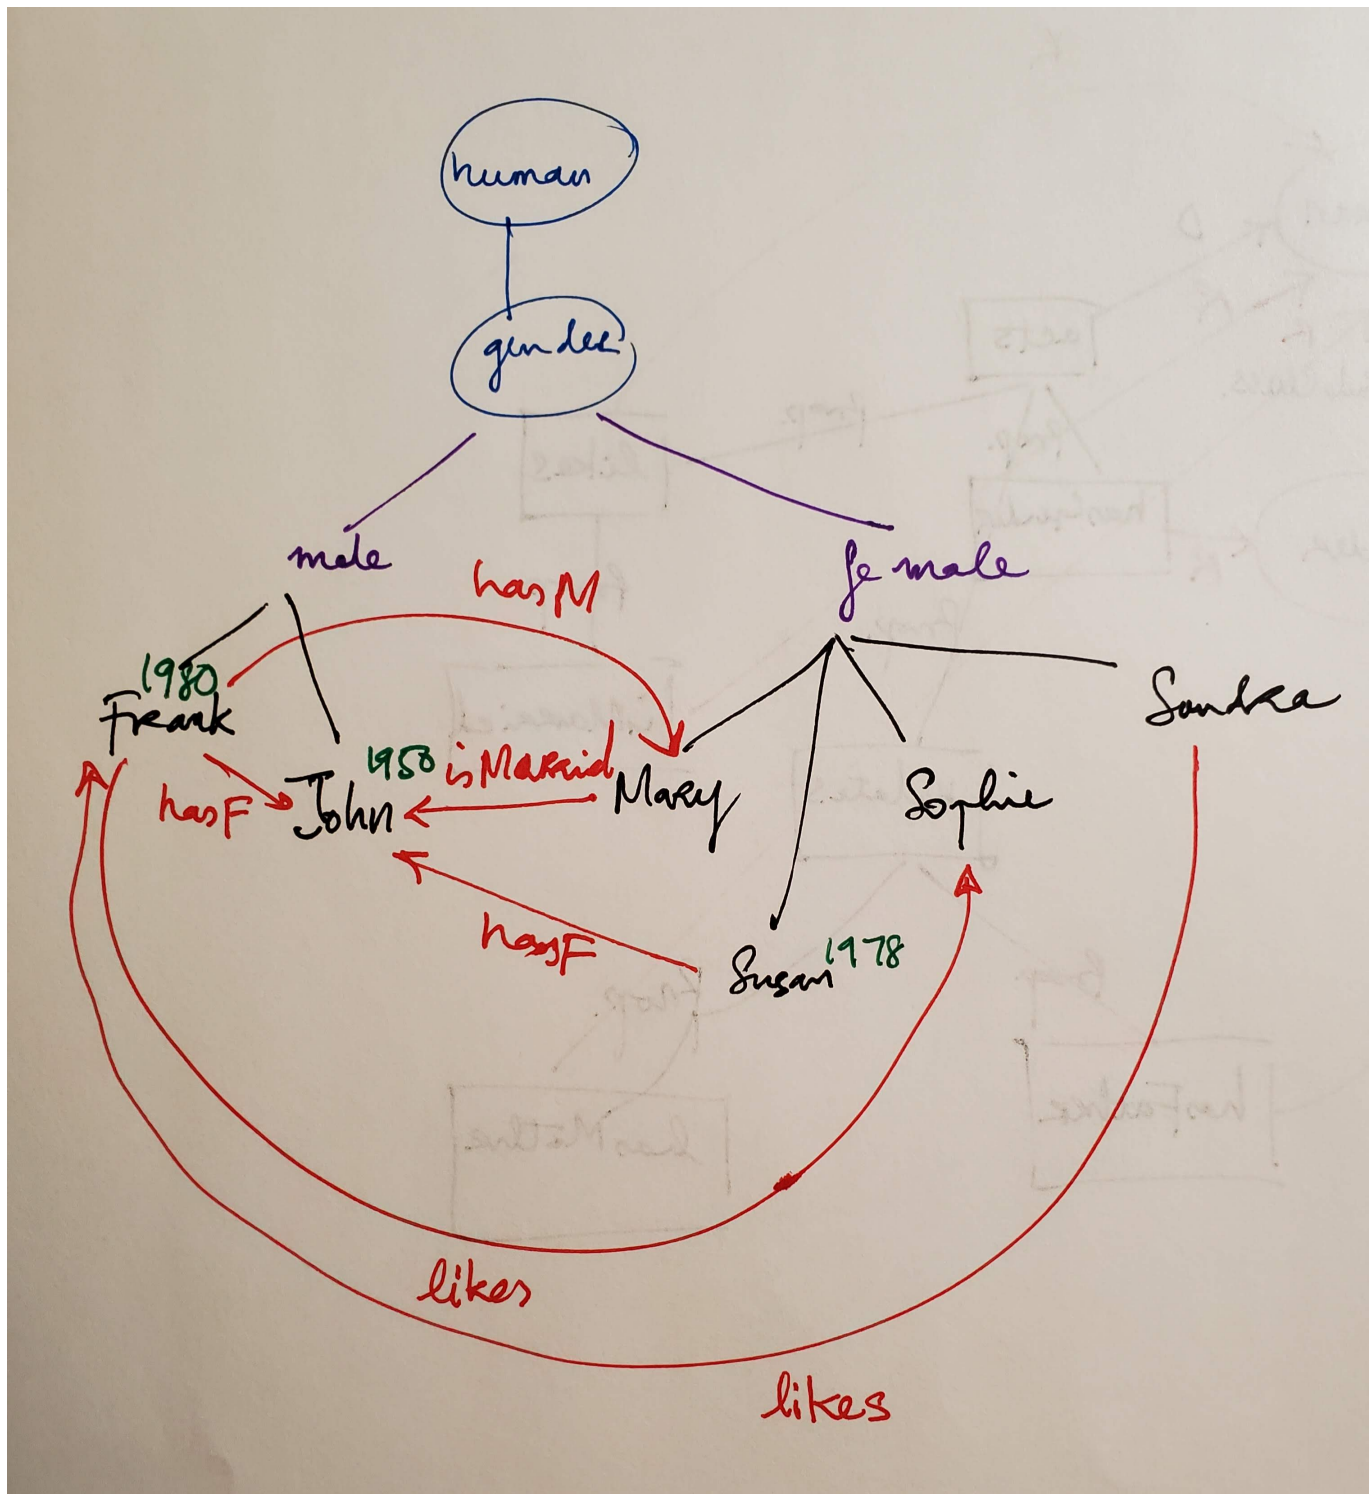 human
gender
male
female
hasM
1980
Frank
Sandra
hasF
John
1950
isMarried
Mary
Sophie
hasF
Susan
1978
likes
likes